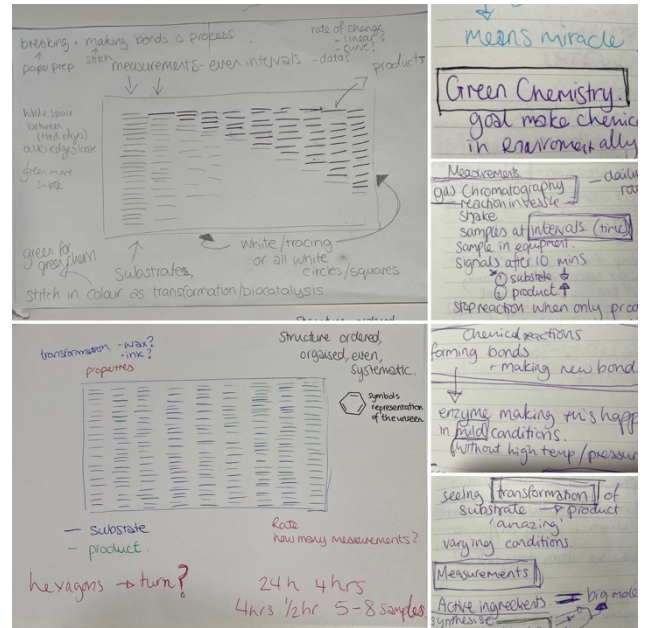 breaking + making bonds is process
paper prep stitch
measurements - even intervals
rate of change
- linear?
- curve?
- data?
products
white space
between
(tried edges)
green more
subtle
green for
green chem
Substrates,
white/tracing
or all white
circles/squares
stitch in colour as transformation/biocatalysis.
transformation - wax?
- ink?
properties
Structure ordered,
organised, even,
systematic.
symbols
representation
of the unseen
substrate
product.
Rate
how many measurements?
hexagons → turn?
24h 4hrs
4hrs 1/2hr 5-8 samples
means miracle
Green Chemistry.
goal make chemic
in enviromentally
Measurements
gas Chromatography
reaction in vessle
shake
samples at intervals (time)
sample in equipment.
signals after 10 mins
① substrate ↓
② product ↑
stop reaction when only prod
chemical reactions
forming bonds
+ making new bond
enzyme making this happ
in mild conditions.
(without high temp/pressur
seeing transformation of
substrate → product
'amazing'
varying conditions
Measurements
Active ingredients.
big mole
synthesise